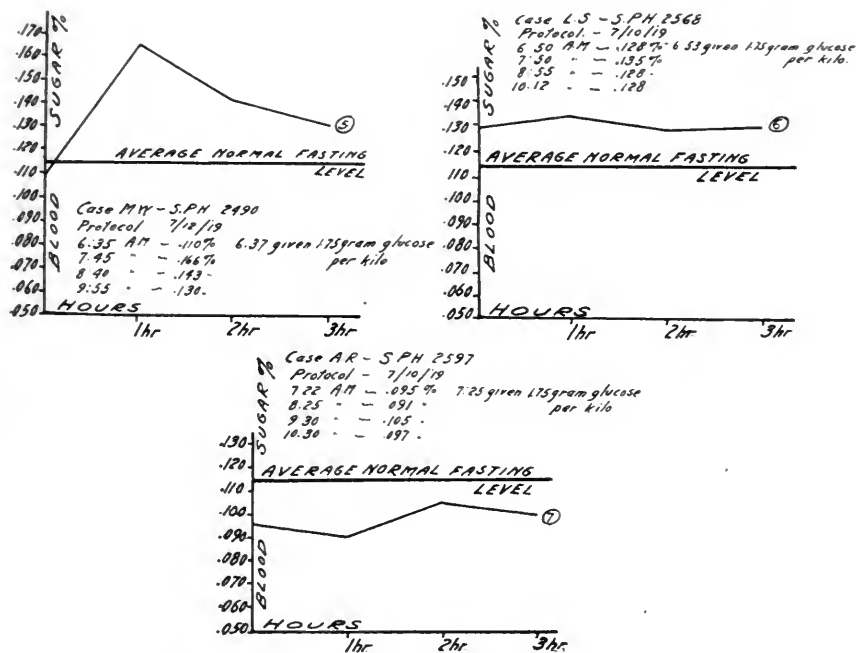 .170
.160
.150
.140
.130
.120
.110
.100
.090
.080
.070
.060
.050
BLOOD SUGAR %
⑤
AVERAGE NORMAL FASTING
LEVEL
Case MW - S.PH 2490
Protocol 7/12/19
6:35 AM - .110% 6.37 given 1.75 gram glucose
7.45 " - .166% per kilo
8 40 " - .143 "
9:55 " - .130 "
HOURS
1hr 2hr 3hr
Case L.S - S.PH 2568
Protocol - 7/10/19
6 50 AM - .128% 6 53 given 1.75 gram glucose
7 50 " - .135% per kilo.
8 55 " - .128 "
10.12 " - .128
.150
.140
.130
.120
.110
.100
.090
.080
.070
.060
.050
BLOOD SUGAR %
⑥
AVERAGE NORMAL FASTING
LEVEL
HOURS
1hr 2hr 3hr
Case A.R - S PH 2597
Protocol - 7/10/19
7 22 AM - .095 % 7:25 given 1.75 gram glucose
8.25 " - .091 " per kilo
9 30 " - .105 "
10.30 " - .097 "
.130
.120
.110
.100
.090
.080
.070
.060
.050
BLOOD SUGAR %
AVERAGE NORMAL FASTING
LEVEL
⑦
HOURS
1hr 2hr 3hr